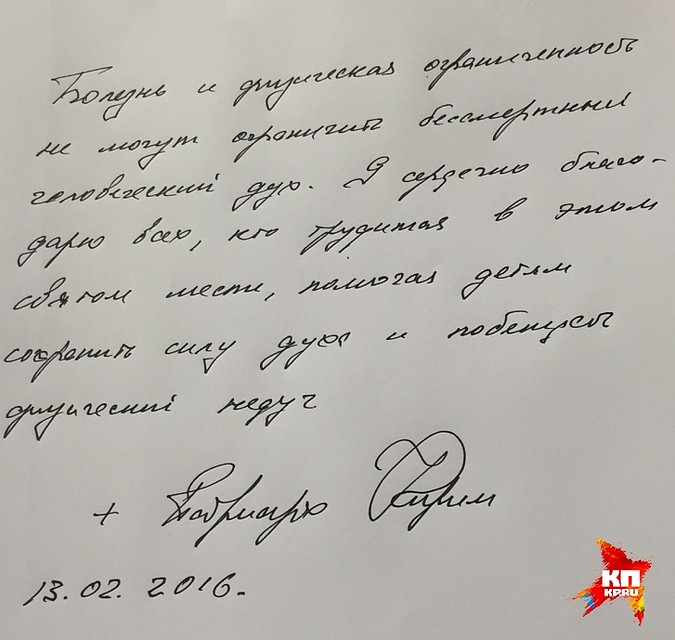 Болезнь и физическая ограниченность
не могут ограничить бессмертный
человеческий дух. Я сердечно благо-
дарю всех, кто трудится в этом
святом месте, помогая детям
сохранить силу духа и победить
физический недуг
+ Патриарх Кирилл
13.02.2016.
КП
KP.RU